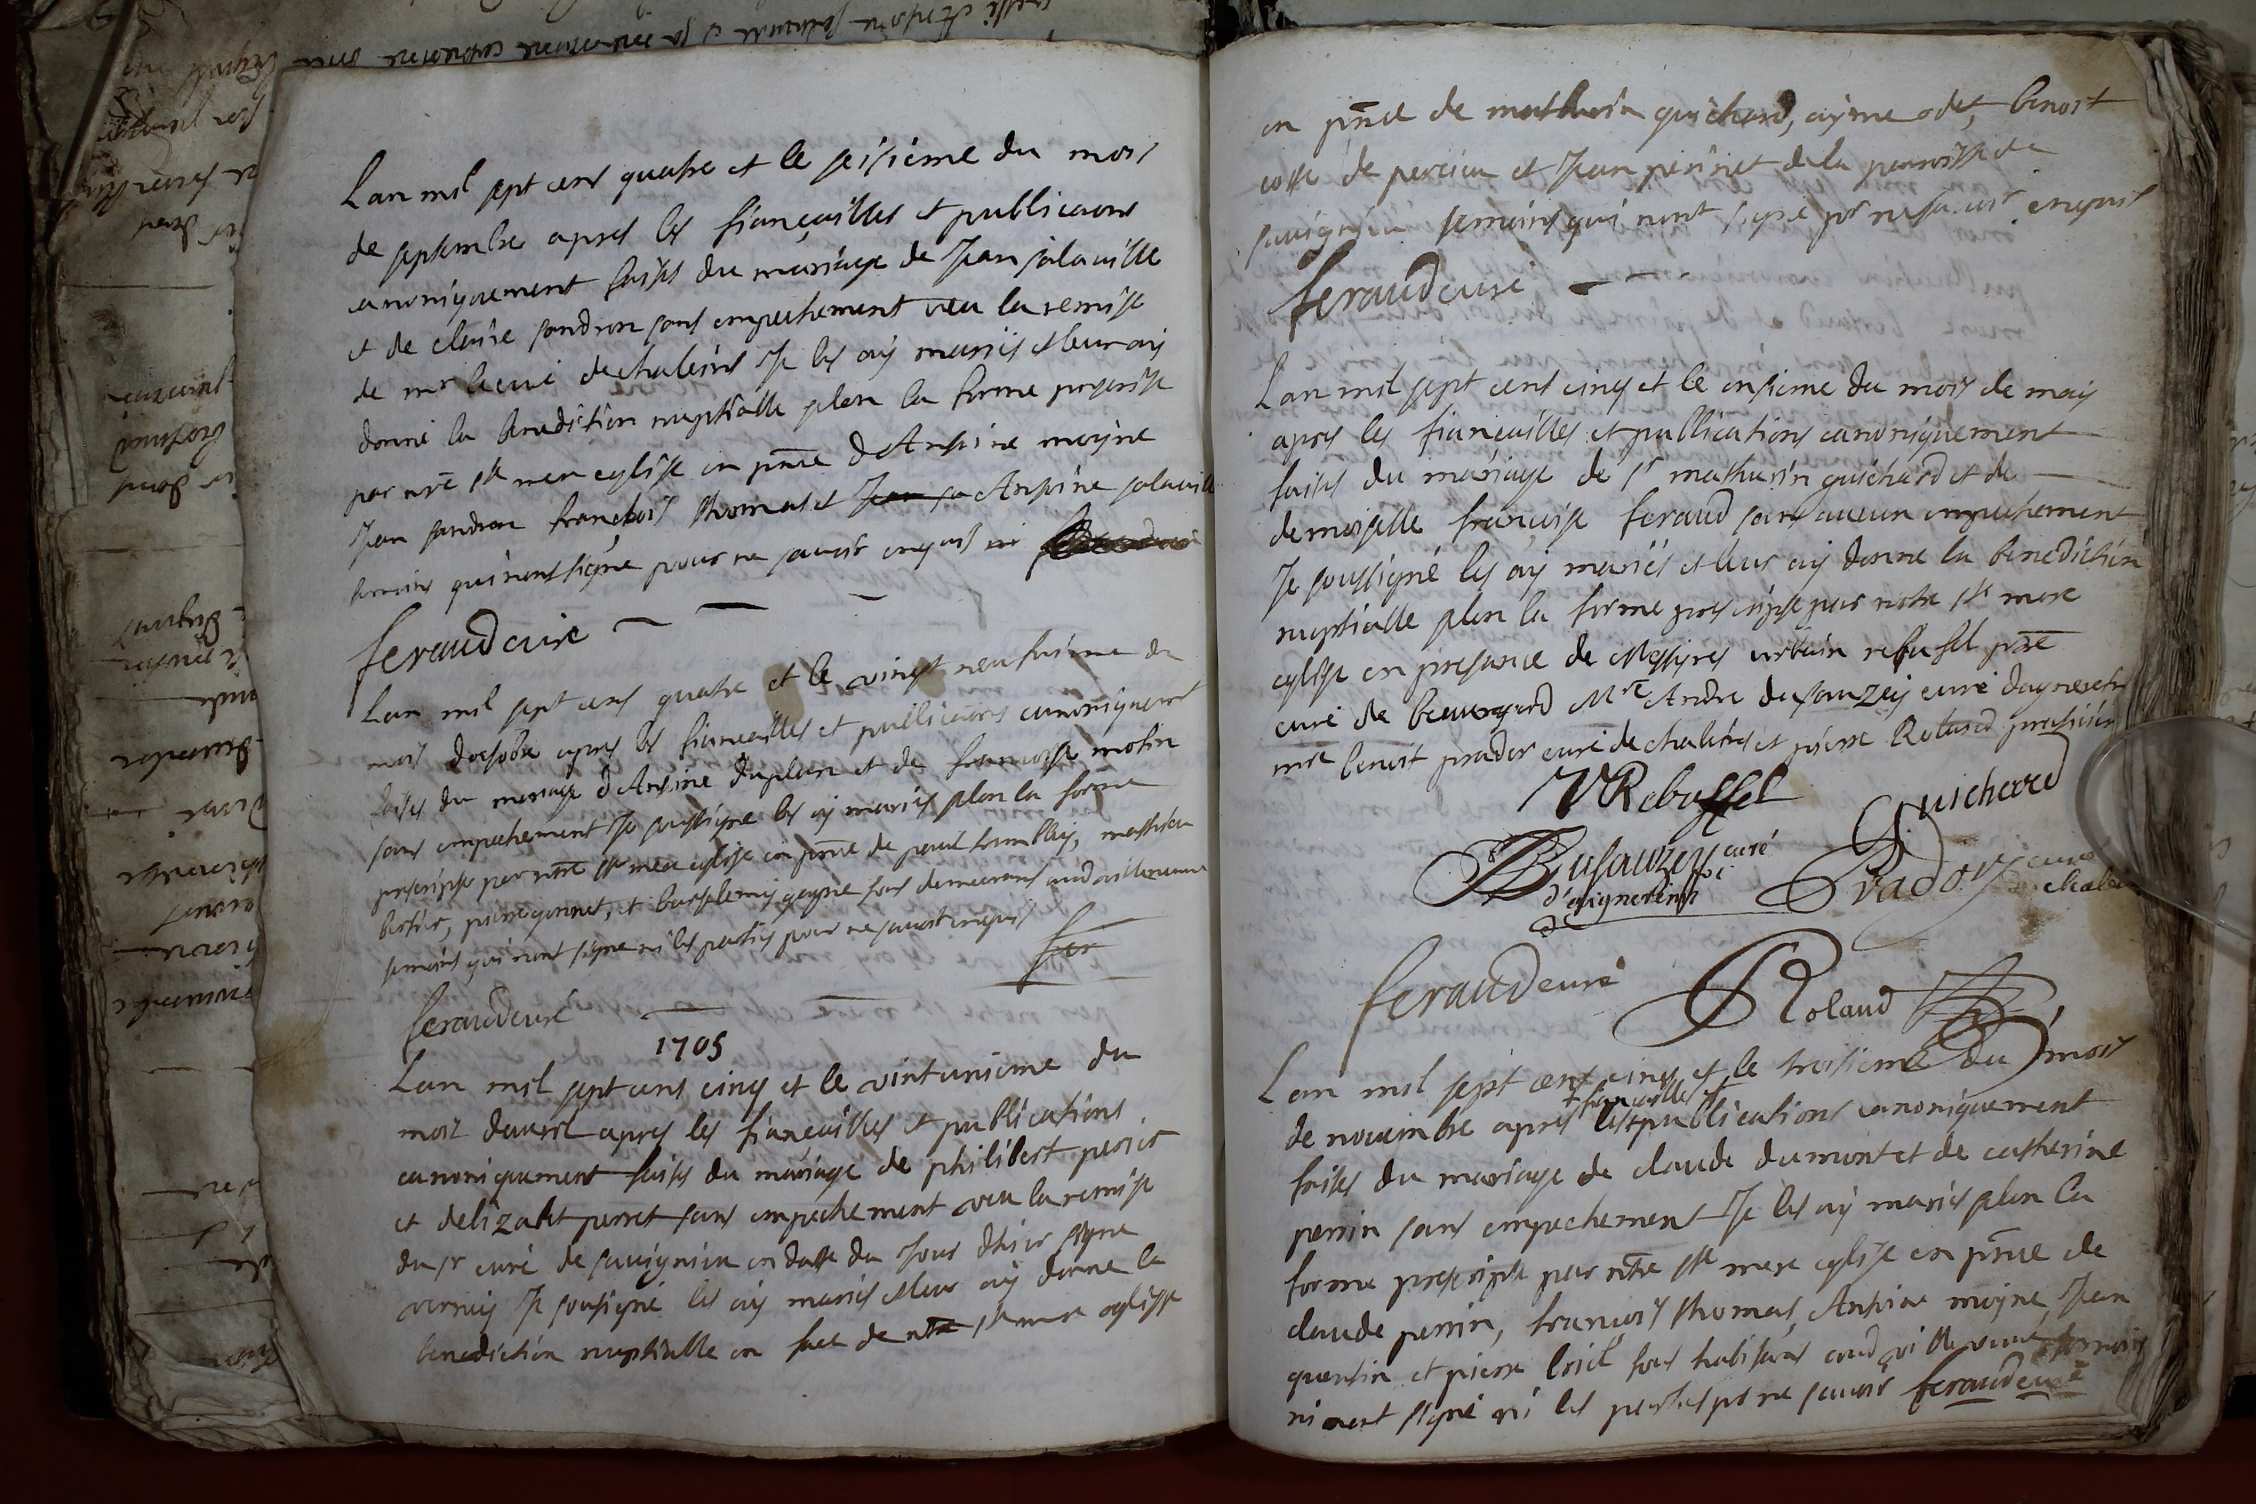 Lan mil sept cens quatre et le seisieme du mois
de septembre apres les fiançailles et publicaons
canoniquement faites du mariage de Jean salaville
et de claire sandron sans empechement veu la remise
de mr le curé de chaleins Je les ay mariés et leur ay
donné la benediction nuptialle selon la forme prescrite
par nre ste mere eglise en pnce d'Antoine moyne
Jean sandron françois thomas et Jean sa Antoine salaville
temoins qui nont signe pour ne savoir enquis
feraud curé
Lan mil sept cens quatre et le vingt neufvieme du
mois doctobre apres les fiancailles et publicaons canoniquement
faites du mariage d'Antoine duplan et de francoise molin
sans empechement Je soussigne les ay mariés selon la forme
prescripte par nre ste mere eglise en pnce de paul tramblay, matthieu
bertier, pierre gonnet, et barthelemis gayne tous demeurans aud villeneuve
temoins qui nont signe ni les parties pour ne savoir enquis
fer
feraud curé
1705
Lan mil sept cens cinq et le vint unieme du
mois davril apres les fiançailles et publications
canoniquement faites du mariage de philibert perier
et delizabet perret sans empechement veu la remise
du sr curé de savignieu en datte du jour dhier signe
vernay Je sousigné les ay mariés et leur ay donne la
benediction nuptialle en face de nre ste mere eglise
en pnce de mathurin guichard, ayme odet, benoit
cotte de percieu et Jean perinet de la parroisse de
savignieu temoins qui nont signe pr ne savoir enquis
feraud curé
Lan mil sept cens cinq et le onsieme du mois de may
apres les fiançailles et publications canoniquement
faites du mariage de sr mathurin guichard et de
demoiselle françoise feraud sans aucun empechement
Je soussigné les ay mariés et leur ay donne la benediction
nuptialle selon la forme prescripte par notre ste mere
eglise en presance de Messires urbain rebuffel pre
curé de beauregard Mre Andre dusauzey curé dagnereins
mre benoit prador curé de chaleins et pierre Roland praticien
V Rebuffel
Guichard
Dusauzey curé
d'aignereins
Prador curé
de chaleins
feraud curé
Roland
Lan mil sept cens cinq et le troisieme du mois
fiancailles et
de novembre apres les publications canoniquement
faites du mariage de claude dumont et de catherine
perrin sans empechement Je les ay mariés selon la
forme prescripte par nre ste mere eglise en pnce de
claude perrin, francois thomas, Antoine moyne, Jean
quentin et pierre loriel tous habitans aud villeneuve temoins
ni nont signé ni les parties pr ne savoir feraud curé